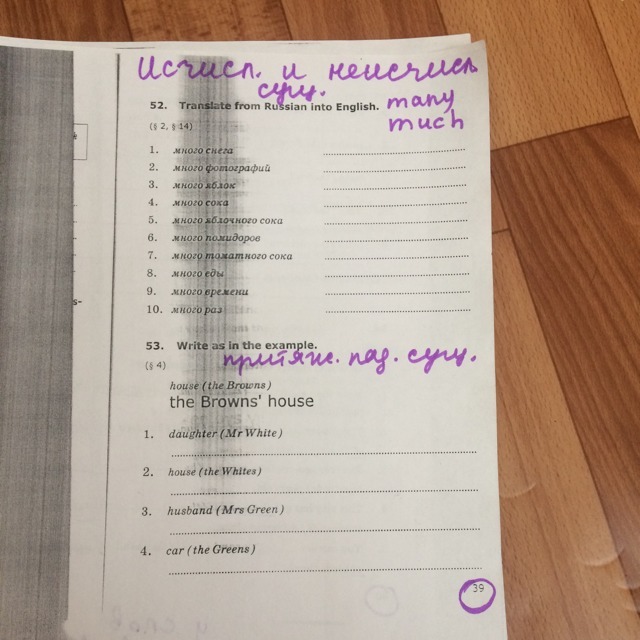 Исчисл. и неисчисл
сущ.
52. Translate from Russian into English. many
(§ 2, § 14) much
1. много снега
2. много фотографий
3. много яблок
4. много сока
5. много яблочного сока
6. много помидоров
7. много томатного сока
8. много еды
9. много времени
10. много раз
53. Write as in the example.
притяж. пад. сущ.
(§ 4)
house (the Browns)
the Browns' house
1. daughter (Mr White)
2. house (the Whites)
3. husband (Mrs Green)
4. car (the Greens)
39